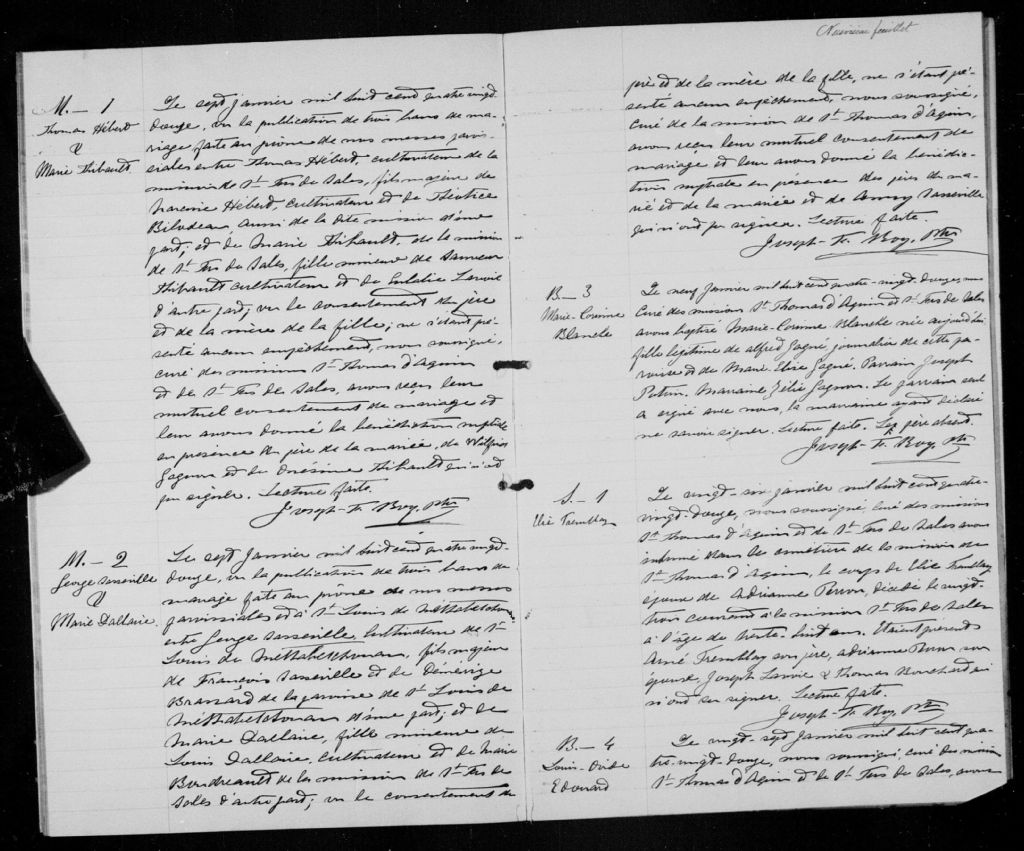 M. - 1
Thomas Hébert
&
Marie Thibault
Le sept Janvier mil huit cent quatre vingt
douze, vu la publication de trois bans de ma-
riage faite au prône de nos messes parois-
siales entre Thomas Hébert, cultivateur de la
mission de St. Frs de Sales, fils majeur de
Hébert, cultivateur et de
Bilodeau, aussi de la dite mission d'une
part; et de Marie Thibault, de la mission
de St. Frs de Sales, fille mineure de
Thibault cultivateur et de Eulalie Lavoie
d'autre part; vu le consentement du père
et de la mère de la fille; ne s'étant pré-
senté aucun empêchement, nous soussigné,
curé des missions St. Thomas d'Aquin
et de St. Frs de Sales, avons reçu leur
mutuel consentement de mariage et
leur avons donné la bénédiction nuptiale
en présence du père de la mariée, de Wilfrid
Gagnon et de Onésime Thibault qui n'ont
pu signer. Lecture faite.
Joseph-Is Roy, Ptre
M. - 2
George Vasseville
&
Marie Dallaire.
Le sept Janvier mil huit cent quatre vingt-
douze, vu la publication de trois bans de
mariage faite au prône de nos messes
paroissiales et à St. Louis de Métabetchouan
entre George Vasseville, cultivateur de St.
Louis de Métabetchouan, fils majeur
de François Vasseville et de
Brassard de la paroisse de St. Louis de
Métabetchouan d'une part; et de
Marie Dallaire, fille mineure de
Louis Dallaire, cultivateur et de Marie
Boudreault de la mission de St. Frs de
Sales d'autre part; vu le consentement du
Neuvième feuillet
père et de la mère de la fille, ne s'étant pré-
senté aucun empêchement, nous soussigné,
Curé de la mission de St. Thomas d'Aquin,
avons reçu leur mutuel consentement de
mariage et leur avons donné la bénédic-
tion nuptiale en présence des pères du ma-
rié et de la mariée et de Vasseville
qui n'ont pu signer. Lecture faite.
Joseph-Is Roy, Ptre
B. - 3
Marie-Corinne
Blanche
Le neuf Janvier mil huit cent quatre-vingt-douze, nous
Curé des missions St. Thomas d'Aquin et St. Frs de Sales
avons baptisé Marie-Corinne Blanche née aujourd'hui
fille légitime de Alfred Gagné journalier de cette pa-
roisse et de Marie Elise Gagné. Parrain Joseph
Potvin, Marraine Zélie Gagnon. Le parrain seul
a signé avec nous, la marraine ayant déclaré
ne savoir signer. Lecture faite. Le père absent.
Joseph-Is Roy, Ptre
S. - 1
Elie Tremblay
Le vingt-six janvier mil huit cent quatre-
vingt-douze, nous soussigné, curé des missions
St. Thomas d'Aquin et de St. Frs de Sales avons
inhumé dans le cimetière de la mission de
St. Thomas d'Aquin, le corps de Elie Tremblay
époux de Adrianne Perron, décédé le vingt-
trois courant à la mission St. Frs de Sales
à l'âge de trente-huit ans. Etaient présents
Aimé Tremblay son père, Adrianne Perron son
épouse, Joseph Lavoie & Thomas Bouchard qui
n'ont su signer. Lecture faite.
Joseph-Is Roy, Ptre
B. - 4
Louis-Ovide
Edouard
Le vingt-sept Janvier mil huit cent qua-
tre-vingt-douze, nous soussigné, curé des missions
St. Thomas d'Aquin et de St. Frs de Sales, avons